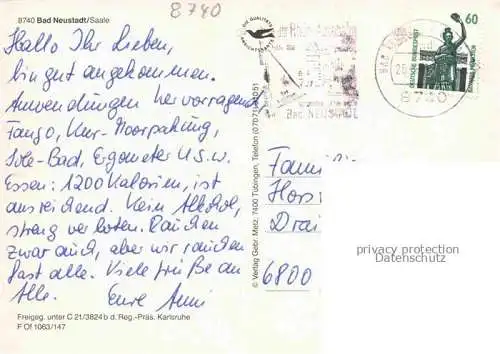 8740 Bad Neustadt/Saale
8740
Hallo Ihr Lieben,
bin gut angekommen.
Anwendungen hervorragend
Fango, Kur-Moorpackung,
Sole-Bad, Ergometer u.s.w.
Essen: 1200 Kalorien, ist
ausreichend. Kein Alkohol,
streng verboten. Rauchen
zwar auch, aber wir rauchen
fast alle. Viele Grüße an
Alle. Eure Anni
Freigeg. unter C 21/3824 b d. Reg.-Präs. Karlsruhe
F Of 1063/147
© Verlag Gebr. Metz, 7400 Tübingen, Telefon
Bad NEUSTADT
8740
60
DEUTSCHE BUNDESPOST
Fami
Hors
Drai
6800
privacy protection
Datenschutz